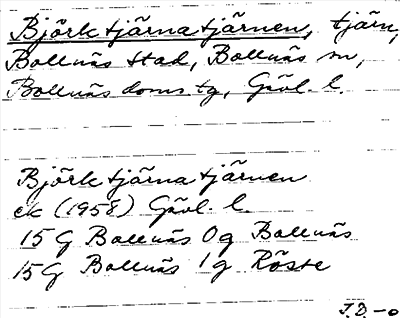 Björktjärnatjärnen, tjärn,
Bollnäs stad, Bollnäs sn,
Bollnäs doms. tg, Gävl. l.
Björktjärnatjärnen
ek (1958) Gävl. l.
15G Bollnäs 0g Bollnäs
15G Bollnäs 1g Röste
J.D.-0